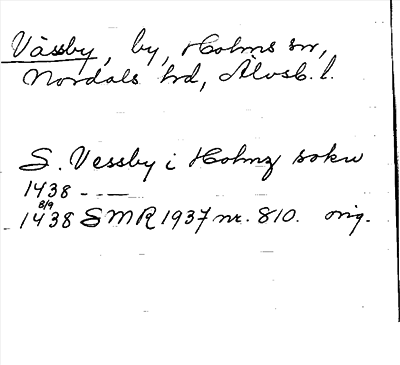 Vässby, by, Holms sn,
Nordals hd, Älvsb. l.
S. Vessby i Holmz sokn
1438 - - —
8/9
1438 SMR 1937 nr. 810. orig.